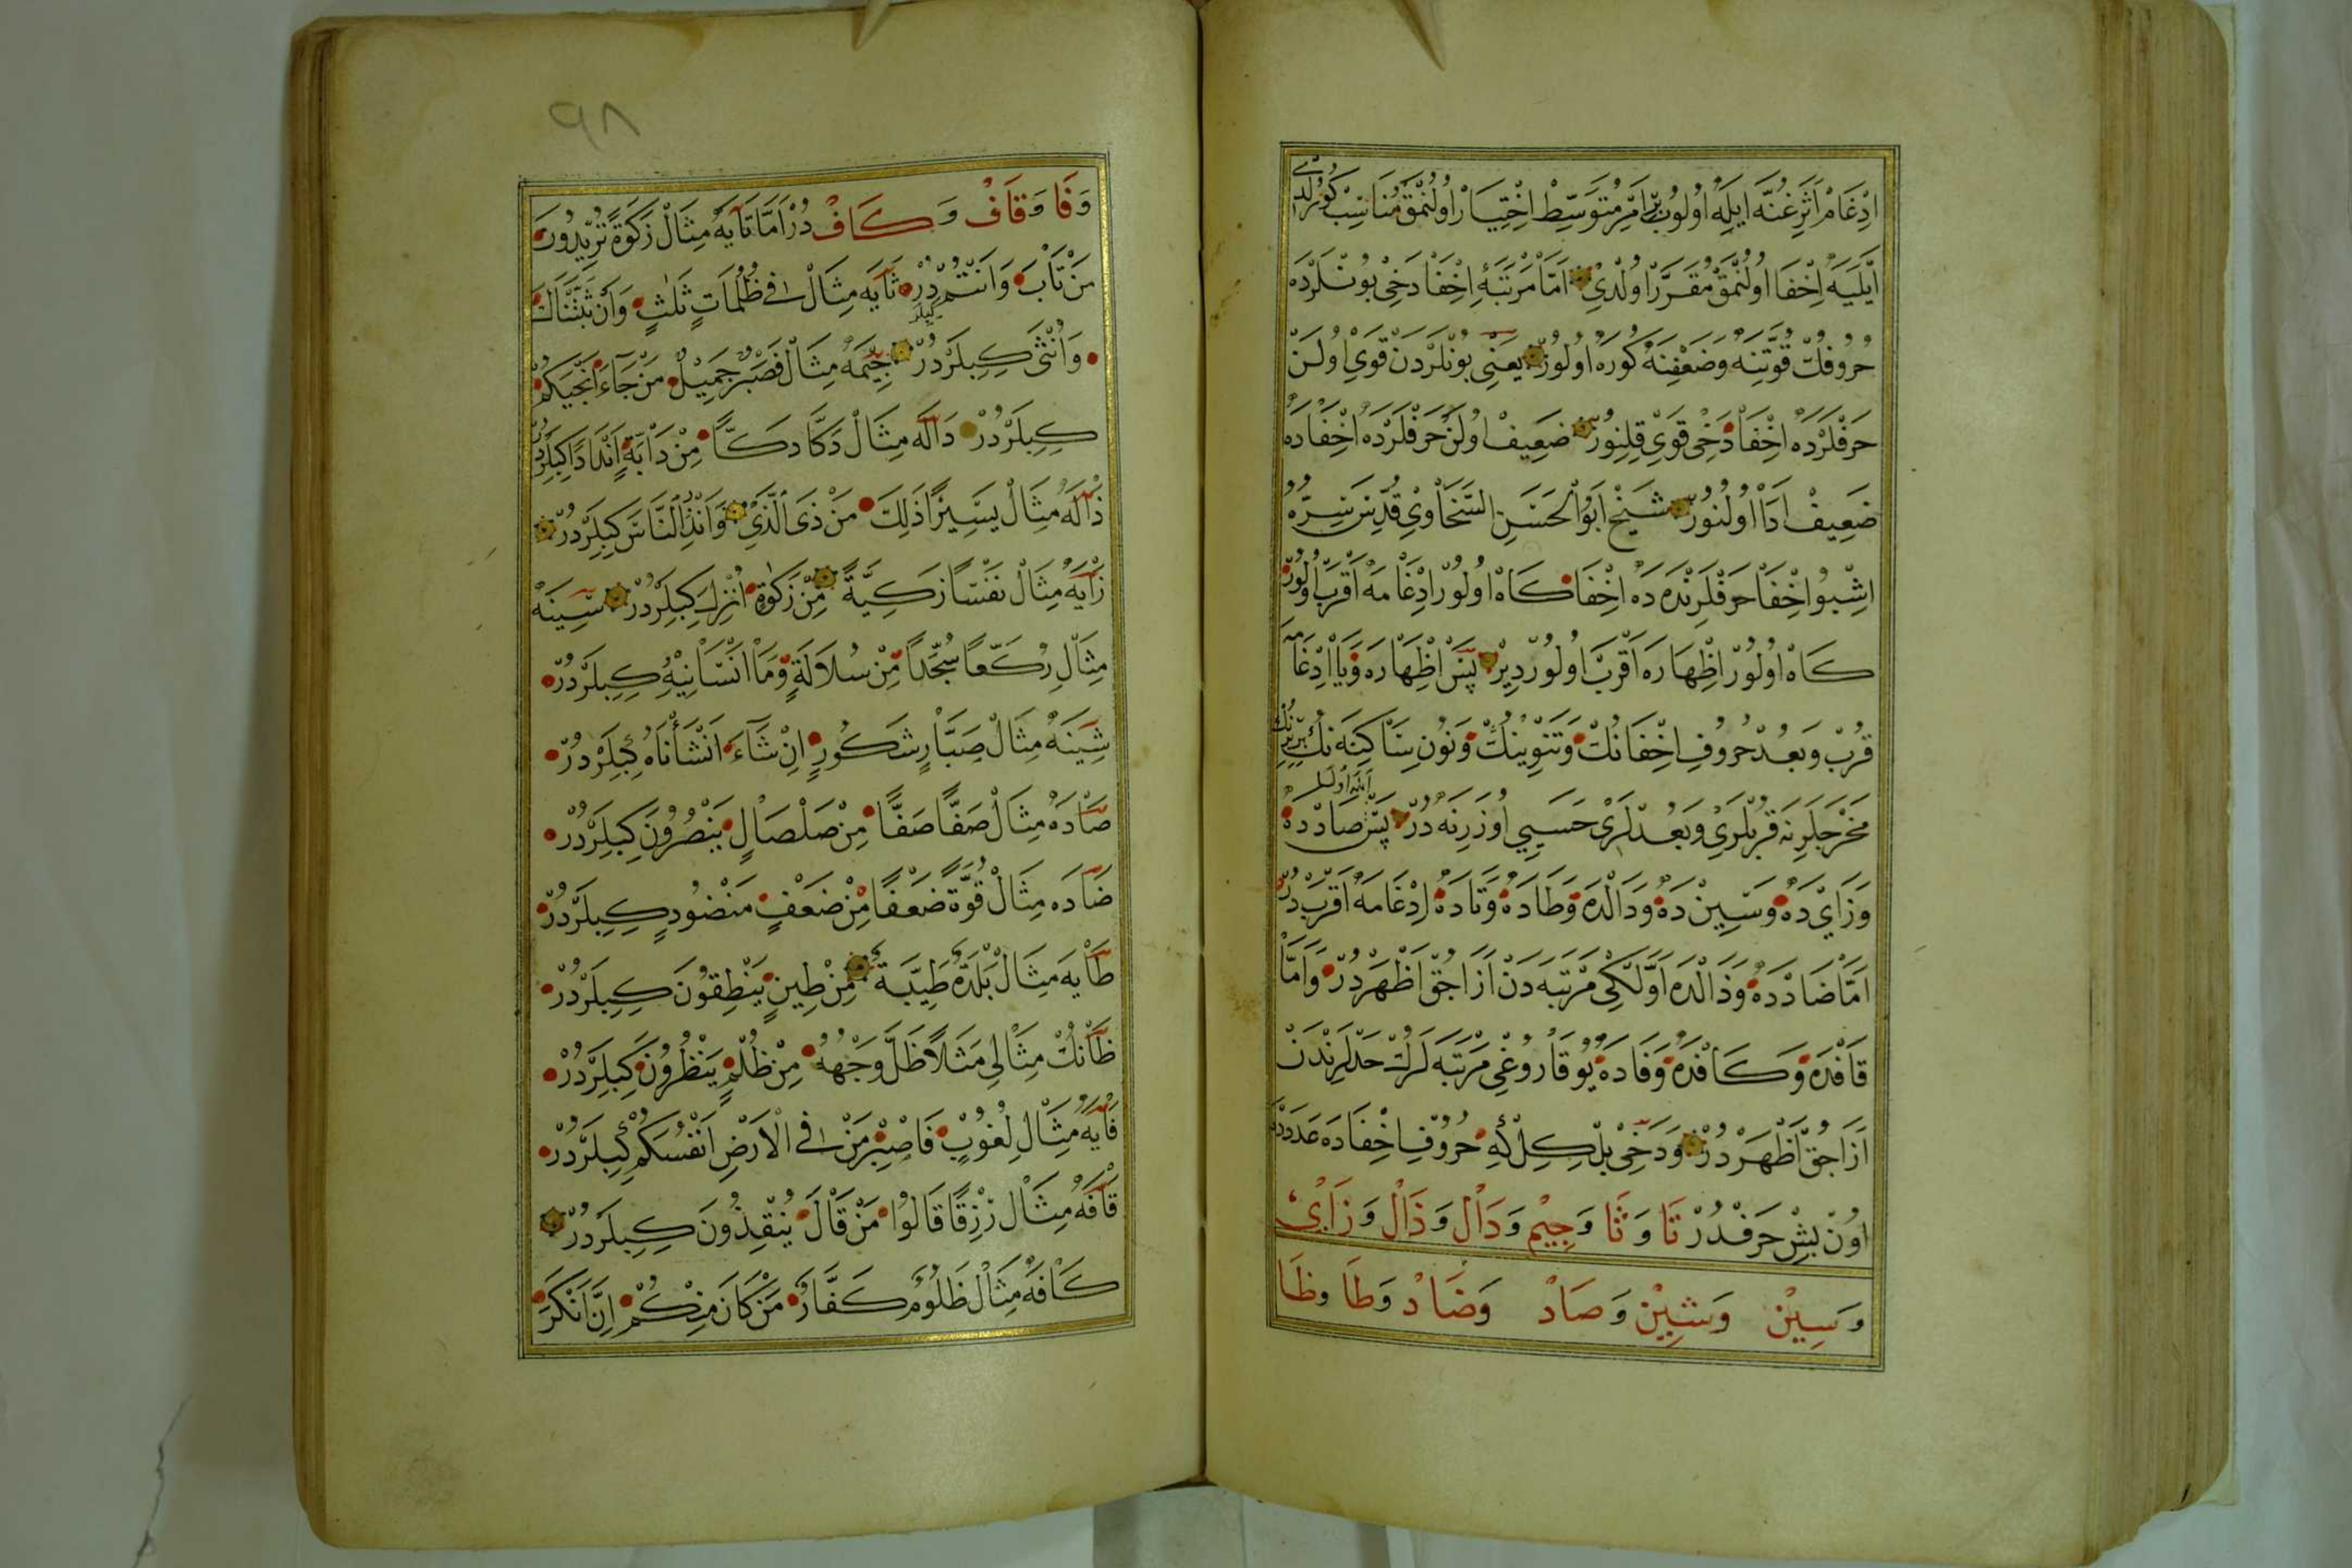 اِدْغَامْ اَثَرِ غُنَّه اِيلَه اُولُوبْ بِرْ اَمْرِ مُتَوَسِّطْ اِخْتِيَارْ اُولُنْمَقْ مُنَاسِبْ كُورُلْدِى
اُولُنْمَقْ مُقَرَّرْ اُولْدِى اَمَّا مَرْتَبَهِٔ اِخْفَا دَخِى بُونْلَرْدَه
حُرُوفُكْ قُوَّتِنَه وَضَعْفِنَه كُورَه اُولُورْ يَعْنِى بُونْلَرْدَنْ قَوِى اُولَنْ
حَرْفْلَرْدَه اِخْفَا دَخِى قَوِى قِلِنُورْ ضَعِيفْ اُولَنْ حَرْفْلَرْدَه اِخْفَادَه
ضَعِيفْ اَدَا اُولُنُورْ شَيْخْ اَبُو الْحَسَنِ السَّخَاوِى قُدِّسَ سِرُّهُ
اِشْبُو اِخْفَا حَرْفْلَرِنْدَه دَه اِخْفَا كَاهْ اُولُورْ اِدْغَامَه اَقْرَبْ اُولُورْ
كَاهْ اُولُورْ اِظْهَارَه اَقْرَبْ اُولُورْ دِيرْ پَسْ اِظْهَارَه وَيَا اِدْغَامَه
قُرْبْ وَبُعْدْ حُرُوفِ اِخْفَانُكْ وَتَنْوِينُكْ وَنُونِ سَاكِنَه نُكْ بِرْبِرِنُكْ
مَخْرَجْلَرِنَه قُرْبْلَرِى وَبُعْدْلَرِى حَسَبِى اُوزَرِنَه دُرْ پَسْ صَادْدَه
وَزَايْدَه وَسِينْ دَه وَدَالْدَه وَطَادَه وَتَادَه اِدْغَامَه اَقْرَبْ دُرْ
اَمَّا ضَادْدَه وَذَالْدَه اَوَّلْكِى مَرْتَبَه دَنْ اَزَاجُقْ اَظْهَرْدُرْ وَاَمَّا
قَافْدَه وَكَافْدَه وَفَادَه يُوقَارُوغِى مَرْتَبَه لَرُكْ حَدْلَرِنْدَنْ
اَزَاجُقْ اَظْهَرْدُرْ وَدَخِى بِلْكِلْ كِه حُرُوفِ اِخْفَادَه عَدَدْدَه
اُونْ بِشْ حَرْفْدُرْ تَا وَثَا وَجِيمْ وَدَالْ وَذَالْ وَزَاىْ
وَسِينْ وَشِينْ وَصَادْ وَضَادْ وَطَا وظَا
٩٨
وَفَا وَقَافْ وَكَافْ دُرْ اَمَّا تَايَه مِثَالْ زَكَوةً تُرِيدُونَ
مَنْ تَابَ وَاَنْتُمْ دُرْ ثَايَه مِثَالْ فِى ظُلُمَاتٍ ثَلٰثٍ وَاَنْ ثَبَّتْنَاكَ
وَاُنْثَى كِبِلَرْدُرْ جِيمَه مِثَالْ فَصَبْرٌ جَمِيلٌ مَنْ جَاءَ اَنْجَيْكُمْ
كِبِلَرْدُرْ دَالَه مِثَالْ دَكًّا دَكًّا مِنْ دَابَّةٍ اَنْدَادًا كِبِلَرْدُرْ
ذَالَه مِثَالْ يَسِيرًا ذَلِكَ مَنْ ذَى الَّذِى وَاَنْذِرِ النَّاسَ كِبِلَرْدُرْ
زَايَه مِثَالْ نَفْسًا زَكِيَّةً مِنْ زَكَوةٍ اُنْزِلَ كِبِلَرْدُرْ سِينَه
مِثَالْ رُكَّعًا سُجَّدًا مِنْ سُلَالَةٍ وَمَا اَنْسَانِيهُ كِبِلَرْدُرْ
شِينَه مِثَالْ صَبَّارٍ شَكُورٍ اِنْ شَاءَ اَنْشَأْنَاهُ كِبِلَرْدُرْ
صَادَه مِثَالْ صَفًّا صَفًّا مِنْ صَلْصَالٍ يَنْصُرُونَ كِبِلَرْدُرْ
ضَادَه مِثَالْ قُوَّةٍ ضَعْفًا مِنْ ضَعْفٍ مَنْضُودٍ كِبِلَرْدُرْ
طَايَه مِثَالْ بَلْدَةٌ طَيِّبَةٌ مِنْ طِينٍ يَنْطِقُونَ كِبِلَرْدُرْ
ظَانُكْ مِثَالِى مَثَلًا ظَلَّ وَجْهُهُ مِنْ ظُلْمٍ يَنْظُرُونَ كِبِلَرْدُرْ
فَايَه مِثَالْ لُغُوبٌ فَاصْبِرْ مَنْ فِى الْاَرْضِ اَنْفُسَكُمْ كِبِلَرْدُرْ
قَافَه مِثَالْ رِزْقًا قَالُوا مَنْ قَالَ يُنْقِذُونَ كِبِلَرْدُرْ
كَافَه مِثَالْ ظَلُومٌ كَفَّارٌ مَنْ كَانَ مِنْكُمْ اِنَّ اَنْكَرَ